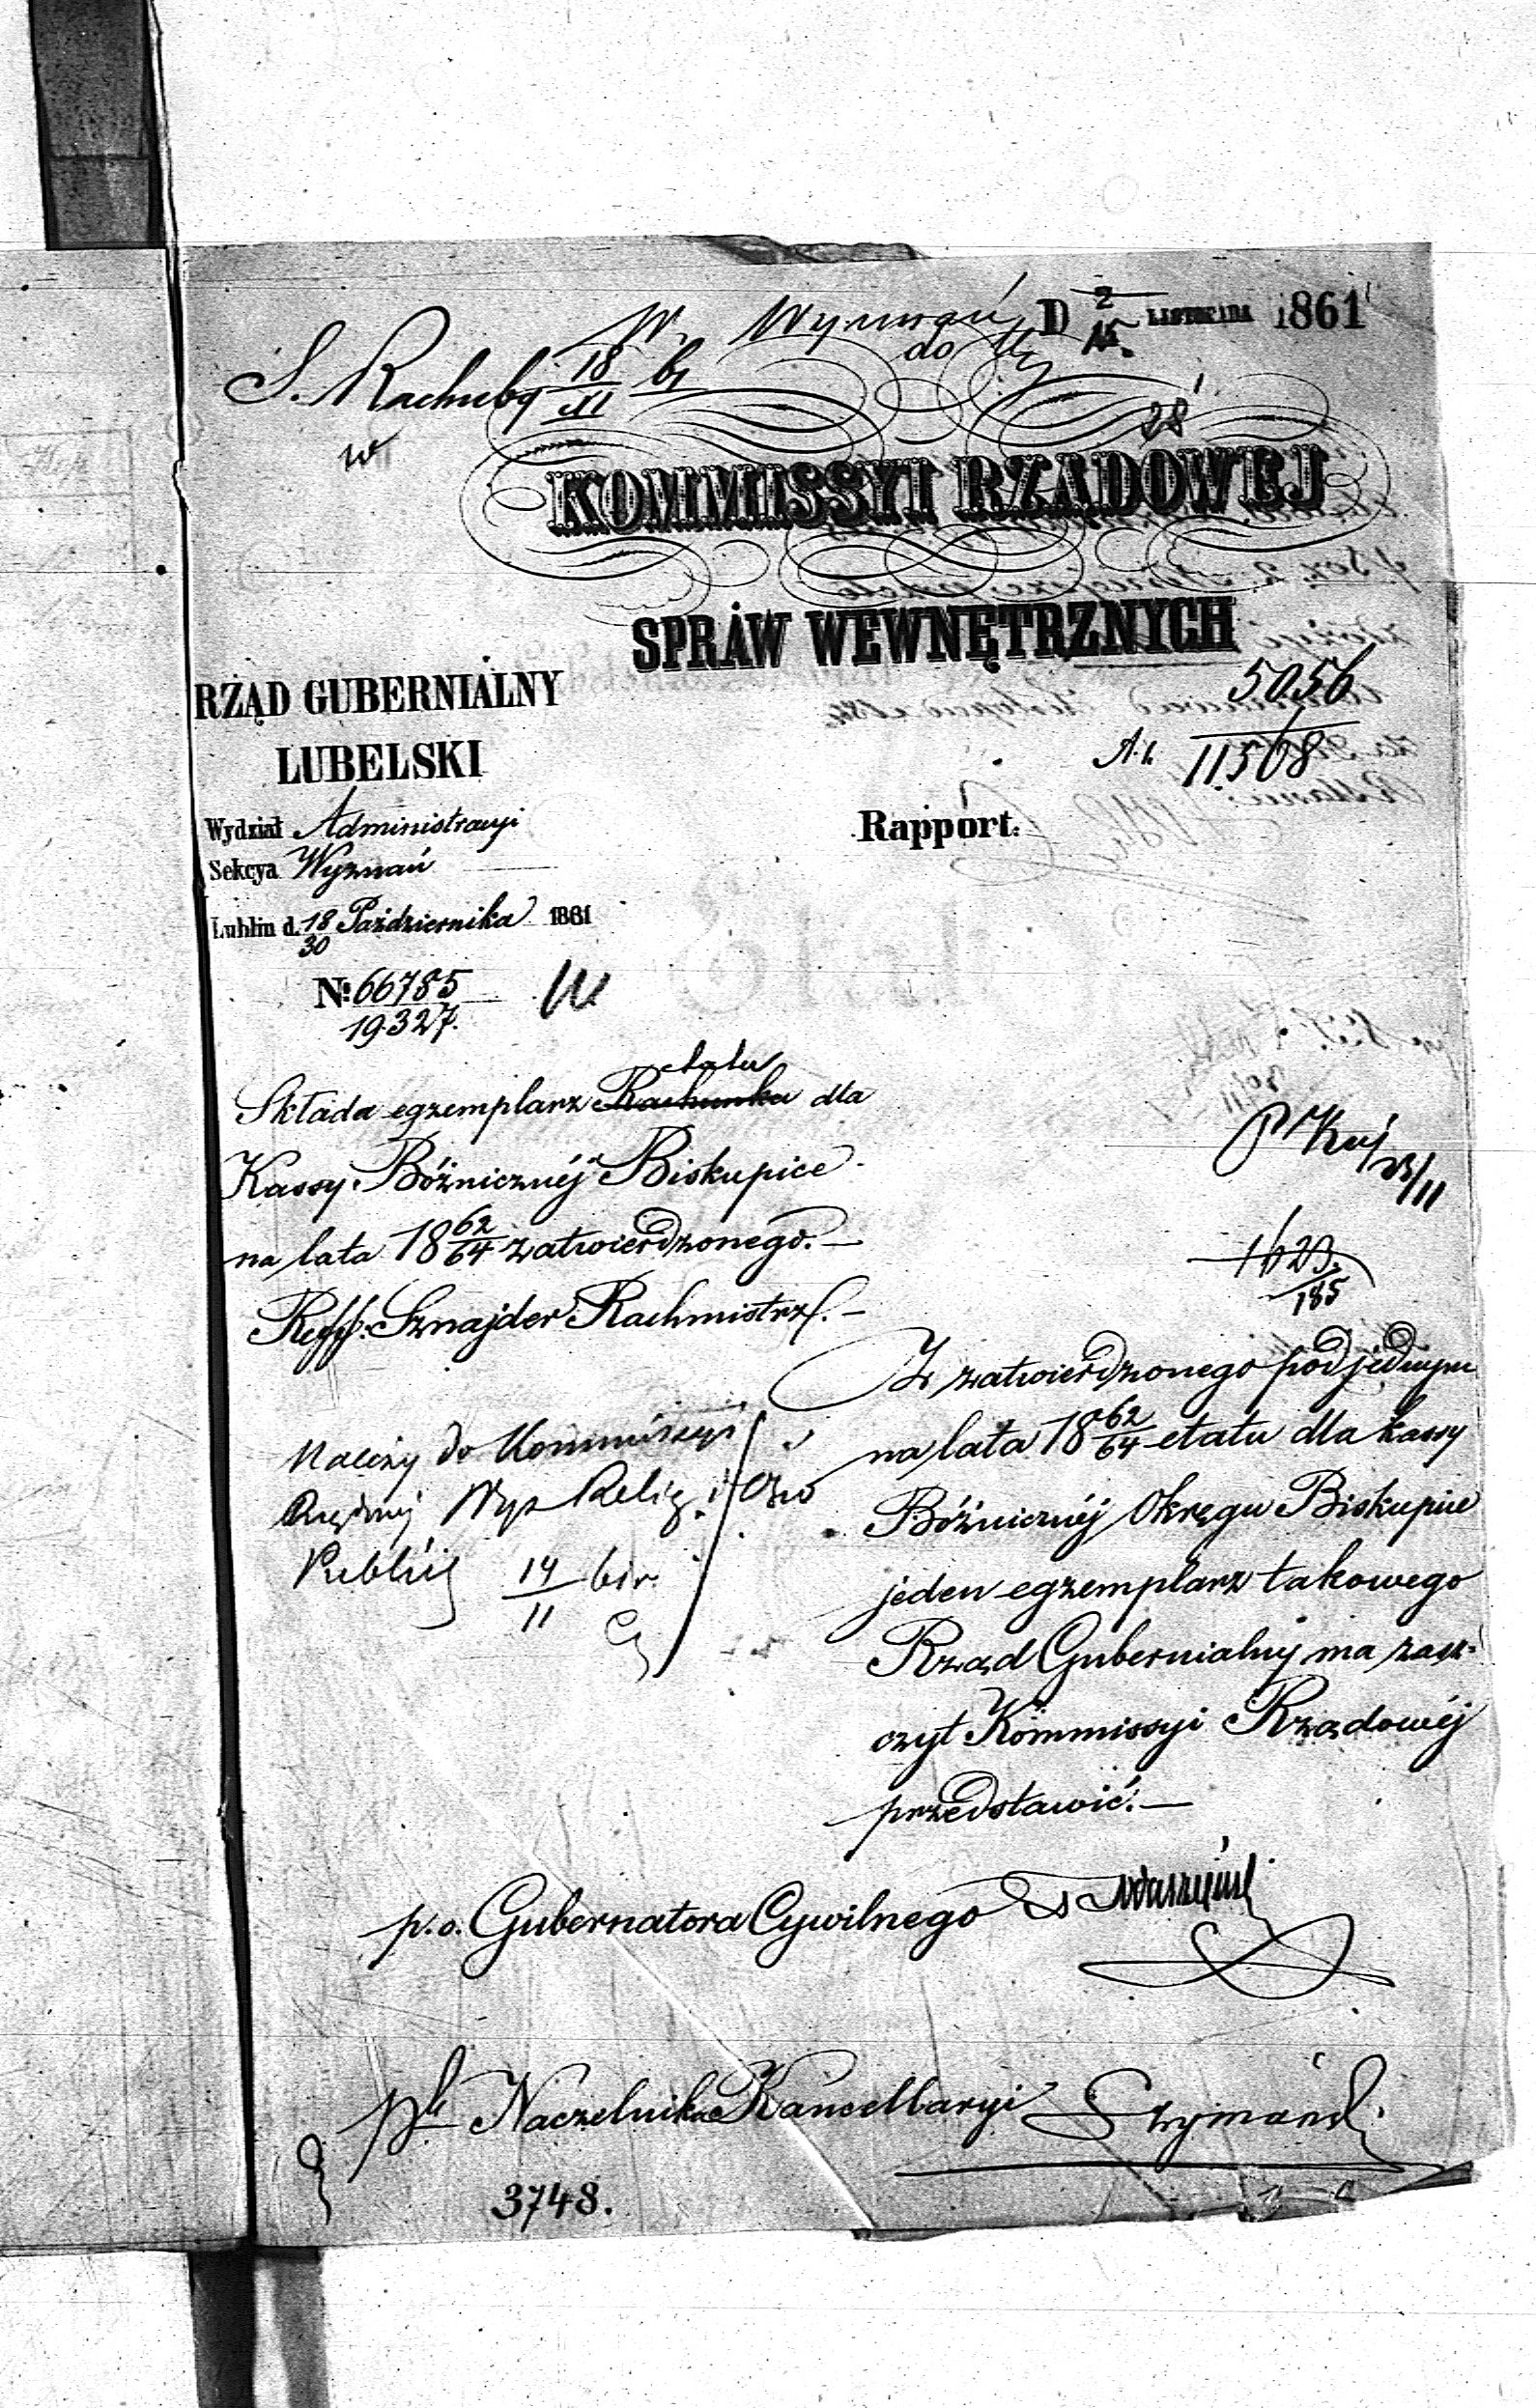 W. Wyznań D 2/14 LISTOPADA 1861
do
S. Rachuby 18/XI 61
w
28
KOMMISSYI RZĄDOWÉJ
SPRAW WEWNĘTRZNYCH
5056
11568
RZĄD GUBERNIALNY
LUBELSKI
Wydział Administracyi
Sekcya Wyznań
Lublin d. 18/30 Października 1861
Nº 66785
19327.
Rapport.
etatu
Składa egzemplarz Rachunku dla
Kassy Bóżnicznéj Biskupice
na lata 18 62/64 zatwierdzonego.—
Reff: Sznajder Rachmistrz.—
23/11
1623.
185
Należy do Kommissyi
Rządowéj Wyz Relig. i Ośw
Publicz 14/11 61 r.
Z zatwierdzonego pod jednym
na lata 18 62/64 etatu dla kassy
Bóżnicznéj Okręgu Biskupice
jeden egzemplarz takowego
Rząd Gubernialny ma zasz-
czyt Kommissyi Rządowéj
przedstawić.—
p. o. Gubernatora Cywilnego
Naczelnika Kancellaryi
3748.